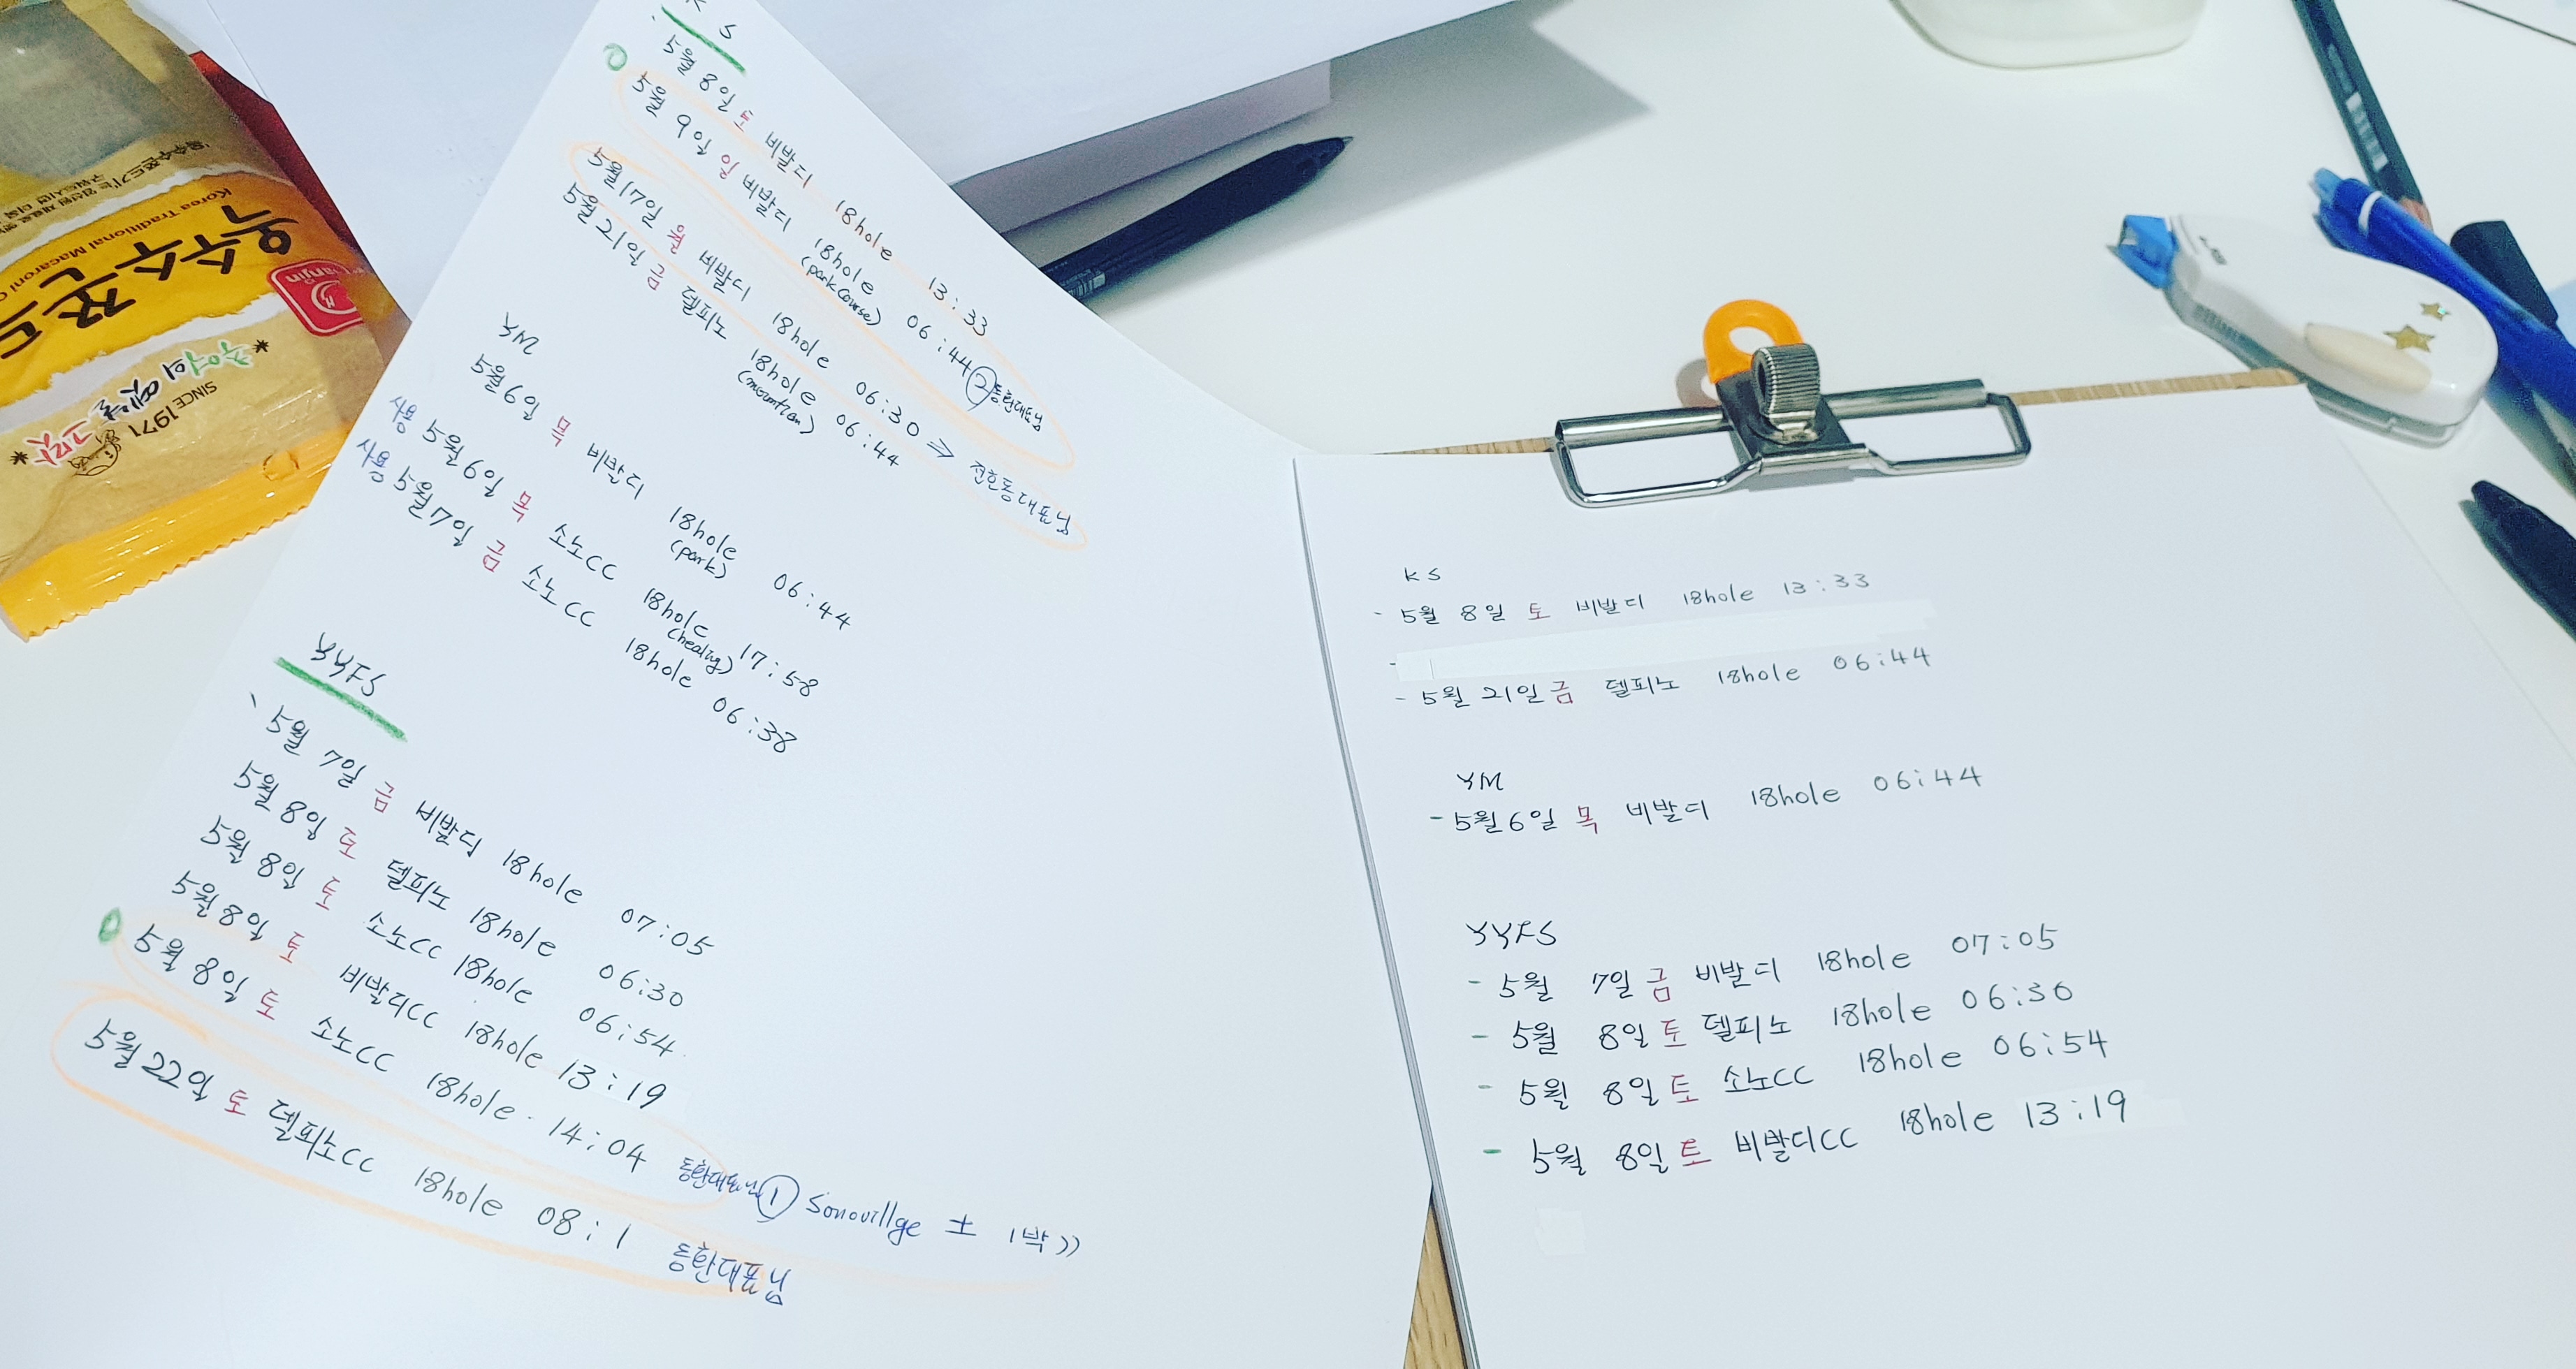 K S
5월 8일 토 비발디 18hole 13:33
5월 9일 일 비발디 18hole 06:44 ② 동환대표님
(park course)
5월17일 월 비발디 18hole 06:30 ⇒ 전한동대표님
5월 21일 금 델피노 18hole 06:44
YM
5월6일 목 비발디 18hole 06:44
(park)
사용 5월6일 목 소노CC 18hole 17:58
(healing)
사용 5월7일 금 소노CC 18hole 06:38
YYFS
5월 7일 금 비발디 18hole 07:05
5월 8일 토 델피노 18hole 06:30
5월 8일 토 소노CC 18hole 06:54
5월 8일 토 비발디CC 18hole 13:19
5월 8일 토 소노CC 18hole 14:04 동환대표님 ① Sonovillge 土 1박))
5월 22일 토 델피노CC 18hole 08:1 동환대표님
KS
- 5월 8일 토 비발디 18hole 13:33
-
- 5월 21일 금 델피노 18hole 06:44
YM
- 5월6일 목 비발디 18hole 06:44
YYFS
- 5월 7일 금 비발디 18hole 07:05
- 5월 8일 토 델피노 18hole 06:30
- 5월 8일 토 소노CC 18hole 06:54
- 5월 8일 토 비발디CC 18hole 13:19
옥수수 쫀드
Korea Traditional Macaroni
추억의 옛날 과자
SINCE 1971